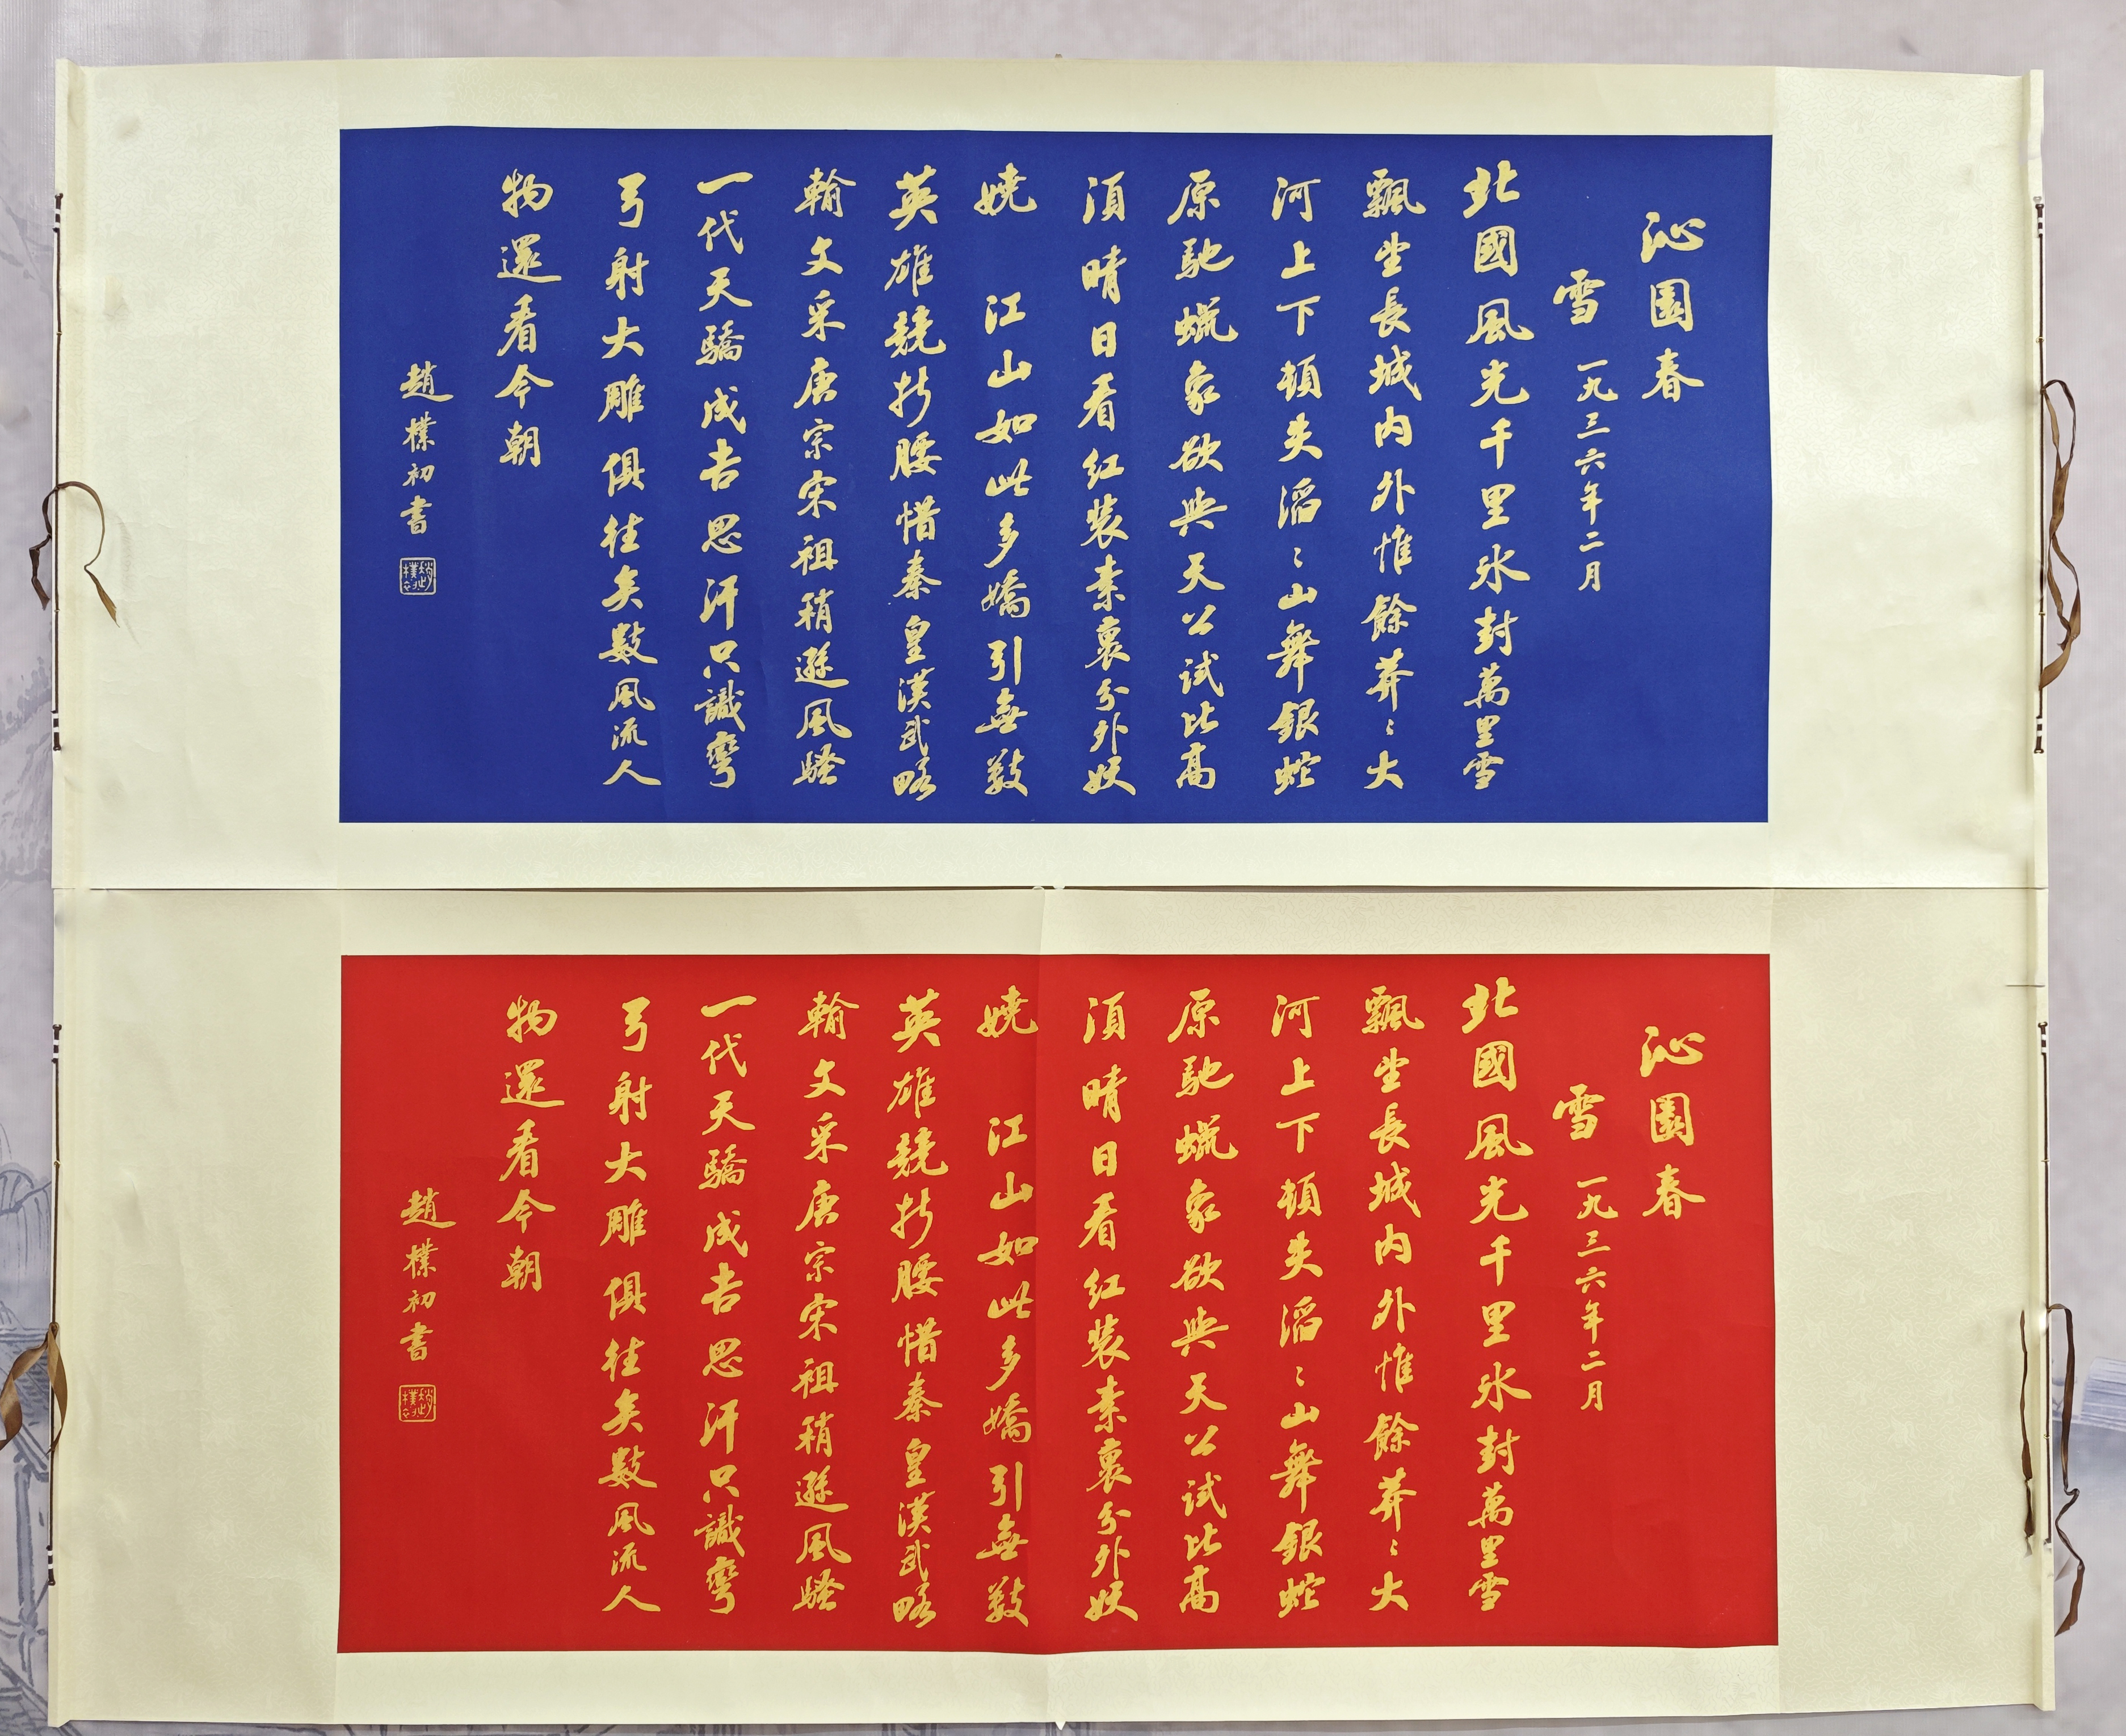 沁園春
雪 一九三六年二月
北國風光千里冰封萬里雪
飄望長城内外惟餘莽〻大
河上下頓失滔〻山舞銀蛇
原馳蠟象欲與天公試比高
須晴日看紅裝素裹分外妖
嬈 江山如此多嬌引無數
英雄競折腰惜秦皇漢武略
輸文采唐宗宋祖稍遜風騷
一代天驕成吉思汗只識彎
弓射大雕俱往矣數風流人
物還看今朝
趙樸初書
沁園春
雪 一九三六年二月
北國風光千里冰封萬里雪
飄望長城内外惟餘莽〻大
河上下頓失滔〻山舞銀蛇
原馳蠟象欲與天公試比高
須晴日看紅裝素裹分外妖
嬈 江山如此多嬌引無數
英雄競折腰惜秦皇漢武略
輸文采唐宗宋祖稍遜風騷
一代天驕成吉思汗只識彎
弓射大雕俱往矣數風流人
物還看今朝
趙樸初書